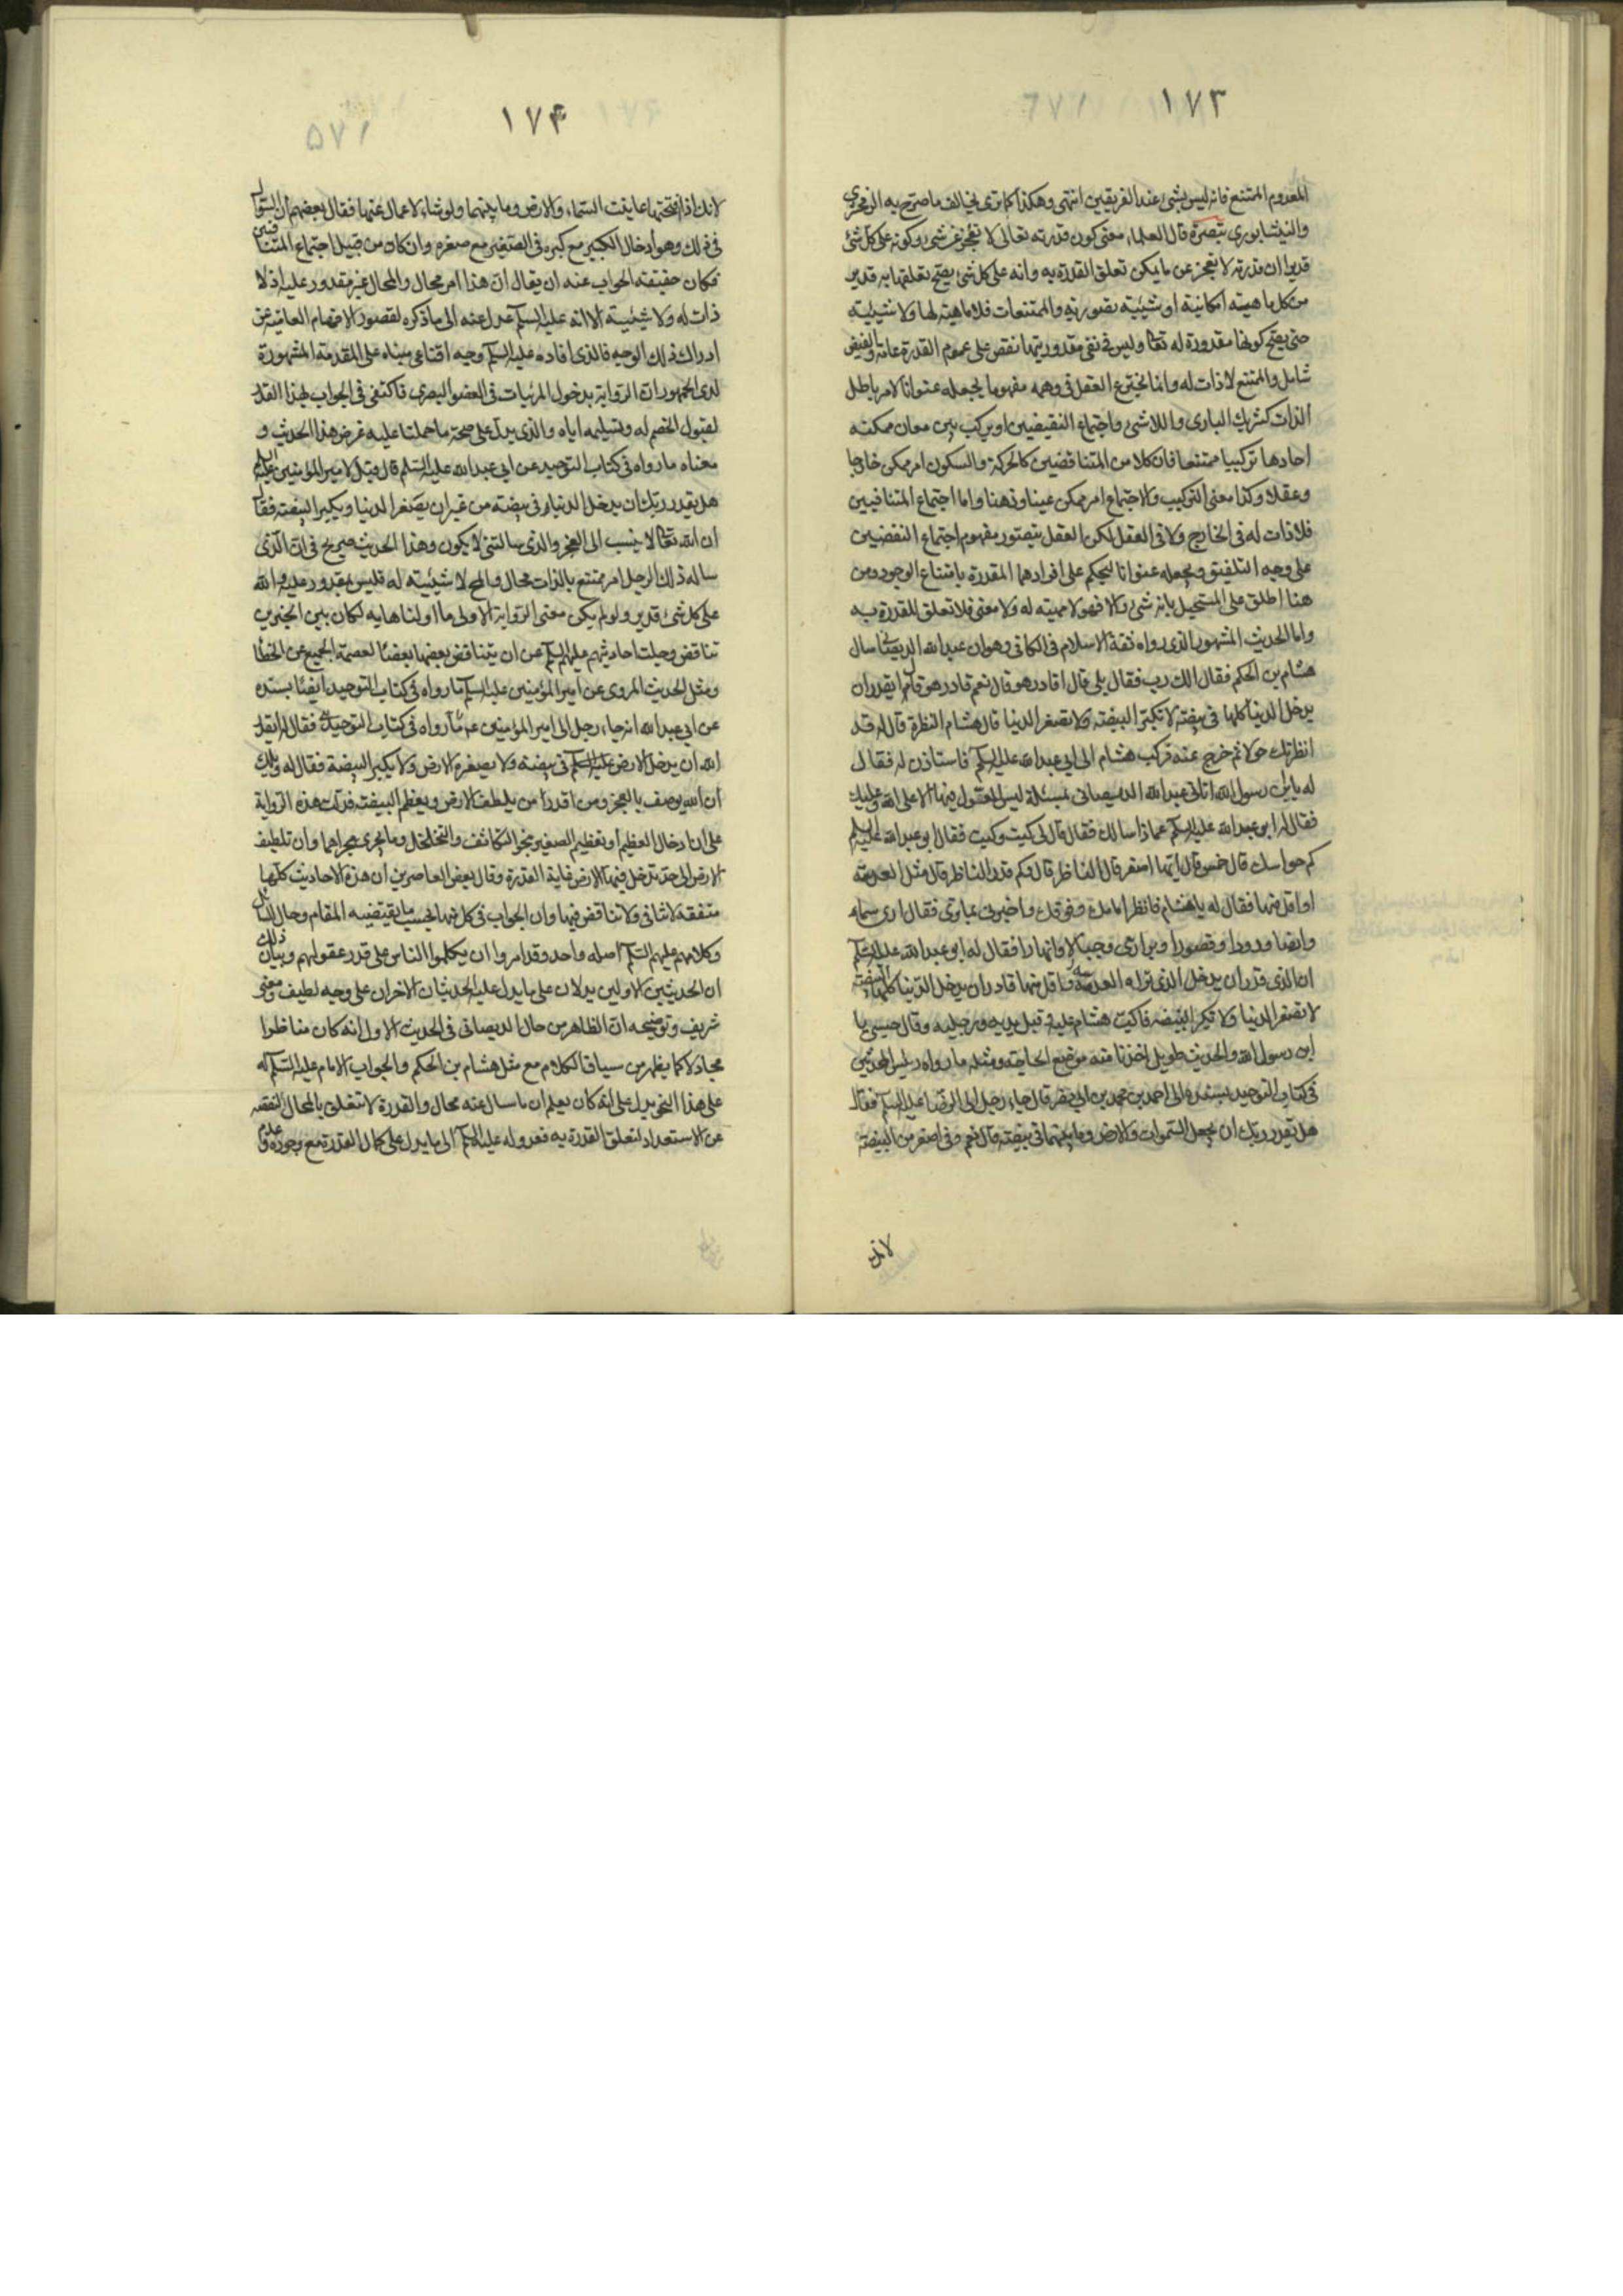 ١٧٣
المعدوم الممتنع فانه ليس بشئ عند الفريقين انتهى وهكذا كما ترى يخالف ما صرح به الزمخشري
والنيشابوري تبصرة قال العلماء معنى كون قدرته تعالى لا تعجز عن شئ وكونه على كل شئ
قديرا ان قدرته لا تعجز عن ما يمكن تعلق القدرة به وانه على كل شئ يصح تعلقها به قدير
من كل ماهيته امكانية او شيئية تصورية والممتنعات فلا ماهية لها ولا شيئية
حتى يصح كونها مقدورة له تعالى وليس في نفي مقدوريتها نقص على عموم القدرة عامة والفيض
شامل والممتنع لا ذات له وانما يخترع العقل في وهمه مفهوما يجعله عنوانا لامر باطل
الذات كشريك الباري واللاشئ واجتماع النقيضين او يركب بين معان ممكنه
احادها تركيبا ممتنعا فان كلا من المتناقضين كالحركة والسكون امر ممكن خارجا
وعقلا وكذا معنى التركيب والاجتماع امر ممكن عينا وذهنا واما اجتماع المتنافيين
فلا ذات له في الخارج ولا في العقل لكن العقل يتصور مفهوم اجتماع النقضيين
على وجه التلفيق ويجعله عنوانا ليحكم على افرادها المقدرة بامتناع الوجود ومن
هنا اطلق على المستحيل بانه شئ والا فهو لا مهيته له ولا معنى فلا تعلق للقدرة به
واما الحديث المشهور الذى رواه ثقة الاسلام في الكافي وهو ان عبد الله الديصاني سال
هشام بن الحكم فقال الك رب فقال بلى قال اقادر هو قال نعم قادر هو قاهر قال ايقدر ان
يدخل الدنيا كلها في بيضة لا تكبر البيضة ولا تصغر الدنيا قال هشام النظرة قال له قد
انظرتك حولا ثم خرج عنه فركب هشام الى ابي عبد الله عليه السلم فاستاذن له فقال
له يابن رسول الله اتاني عبد الله الديصاني بمسئلة ليس المعول فيها الا على الله وعليك
فقال له ابو عبد الله عليه السلم عما ذا سالك فقال قال لى كيت وكيت فقال ابو عبد الله عليه السلم
كم حواسك قال خمس قال ايها اصغر قال الناظر قال فكم قدر الناظر قال مثل العدسة
او اقل منها فقال له يا هشام فانظر امامك وفوقك واخبرني بما ترى فقال ارى سماء
وارضا ودورا وقصورا وبراري وجبالا وانهارا فقال له ابو عبد الله عليه السلم
ان الذى قدر ان يدخل الذى تراه العدسة او اقل منها قادر ان يدخل الدنيا كلها البيضة
لا تصغر الدنيا ولا تكبر البيضة فاكب هشام عليه وقبل يديه ورجليه وقال حسبى يا
ابن رسول الله والحديث طويل اخذنا منه موضع الحاجة ومثله ما رواه رئيس المحدثين
في كتاب التوحيد بسنده الى احمد بن محمد بن ابي نصر قال جاء رجل الى الرضا عليه السلم فقال
هل يقدر ربك ان يجعل السموات والارض وما بينهما في بيضة قال نعم وفي اصغر من البيضة
لانك
١٧٤
لانك اذا فتحتها عاينت السماء والارض وما بينهما ولو شاء لاعماك عنها فقال بعضهم ان السؤال
في ذلك وهو ادخال الكبير مع كبره في الصغير مع صغره وان كان من قبيل اجتماع المتنافيين
فكان حقيقته الجواب عنه ان يقال ان هذا امر محال والمحال غير مقدور عليه اذ لا
ذات له ولا شيئية الا انه عليه السلم عدل عنه الى ما ذكره لقصور الافهام العامة عن
ادراك ذلك الوجيه فالذى افاده عليه السلم وجيه اقناعي مبناه على المقدمة المشهورة
لدى الجمهور ان الرواية بدخول المرئيات في العضو البصري فاكتفى في الجواب بهذا القدر
لقبول الخصم له وتسليمه اياه والذى يدل على صحة ما حملنا عليه غرض هذا الحديث و
معناه ما رواه في كتاب التوحيد عن ابي عبد الله عليه السلم قال قيل لامير المؤمنين عليه السلم
هل يقدر ربك ان يدخل الدنيا في بيضة من غير ان يصغر الدنيا ويكبر البيضة فقال
ان الله تعالى لا ينسب الى العجز والذى سالتني لا يكون وهذا الحديث صريح في ان الذى
ساله ذلك الرجل امر ممتنع بالذات محال والمح لا شيئية له فليس بمقدور عليه والله
على كل شئ قدير ولو لم يكن معنى الرواية الاولى ما اولناها به لكان بين الخبرين
تناقض وجلت احاديثهم عليهم السلم عن ان يتناقض بعضها بعضا لعصمة الجميع عن الخطأ
ومثل الحديث المروى عن امير المؤمنين عليه السلم ما رواه في كتاب التوحيد ايضا بسنده
عن ابي عبد الله انه جاء رجل الى امير المؤمنين عم ما رواه في كتاب التوحيد فقال ايقدر
الله ان يدخل الارض في بيضة ولا يصغر الارض ولا يكبر البيضة فقال له ويلك
ان الله لا يوصف بالعجز ومن اقدر من يلطف الارض ويعظم البيضة فدلت هذه الرواية
على ان ادخال العظيم او تعظيم الصغير بنحو التكاثف والتخلخل وما يجرى مجراهما وان تلطيف
الارض الى حد تدخل فيها الارض غاية القدرة وقال بعض المعاصرين ان هذه الاحاديث كلها
متفقه لا تنافي ولا تناقض فيها وان الجواب في كل منها بحسب ما يقتضيه المقام وحال السائل
وكلامهم عليهم السلم اصله واحد وقد امروا ان يكلموا الناس على قدر عقولهم وبيان ذلك
ان الحديثين الاولين يدلان على ما يدل عليه الحديثان الاخران على وجه لطيف ومعنى
شريف وتوضيحه ان الظاهر من حال الديصاني في الحديث الاول انه كان مناظرا
مجادلا كما يظهر من سياق الكلام مع مثل هشام بن الحكم والجواب الامام عليه السلم له
على هذا النحو يدل على انه كان يعلم ان ما سال عنه محال والقدرة لا تتعلق بالمحال لنقصه
عن الاستعداد لتعلق القدرة به فعدوله عليه السلم الى ما يدل على كمال القدرة مع وجوده